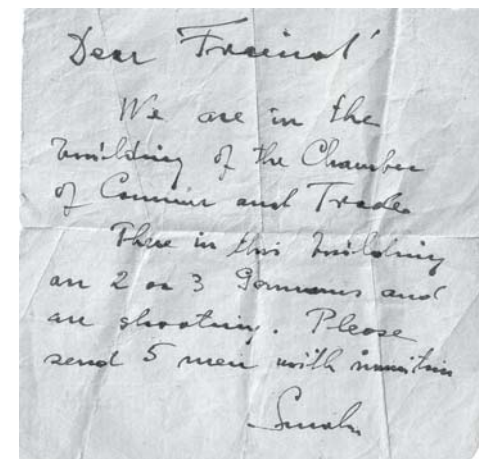 Dear Freind!
We are in the
building of the Chamber
of and Trade.
There in this building
are 2 or 3 Germans and
are shooting. Please
send 5 men with